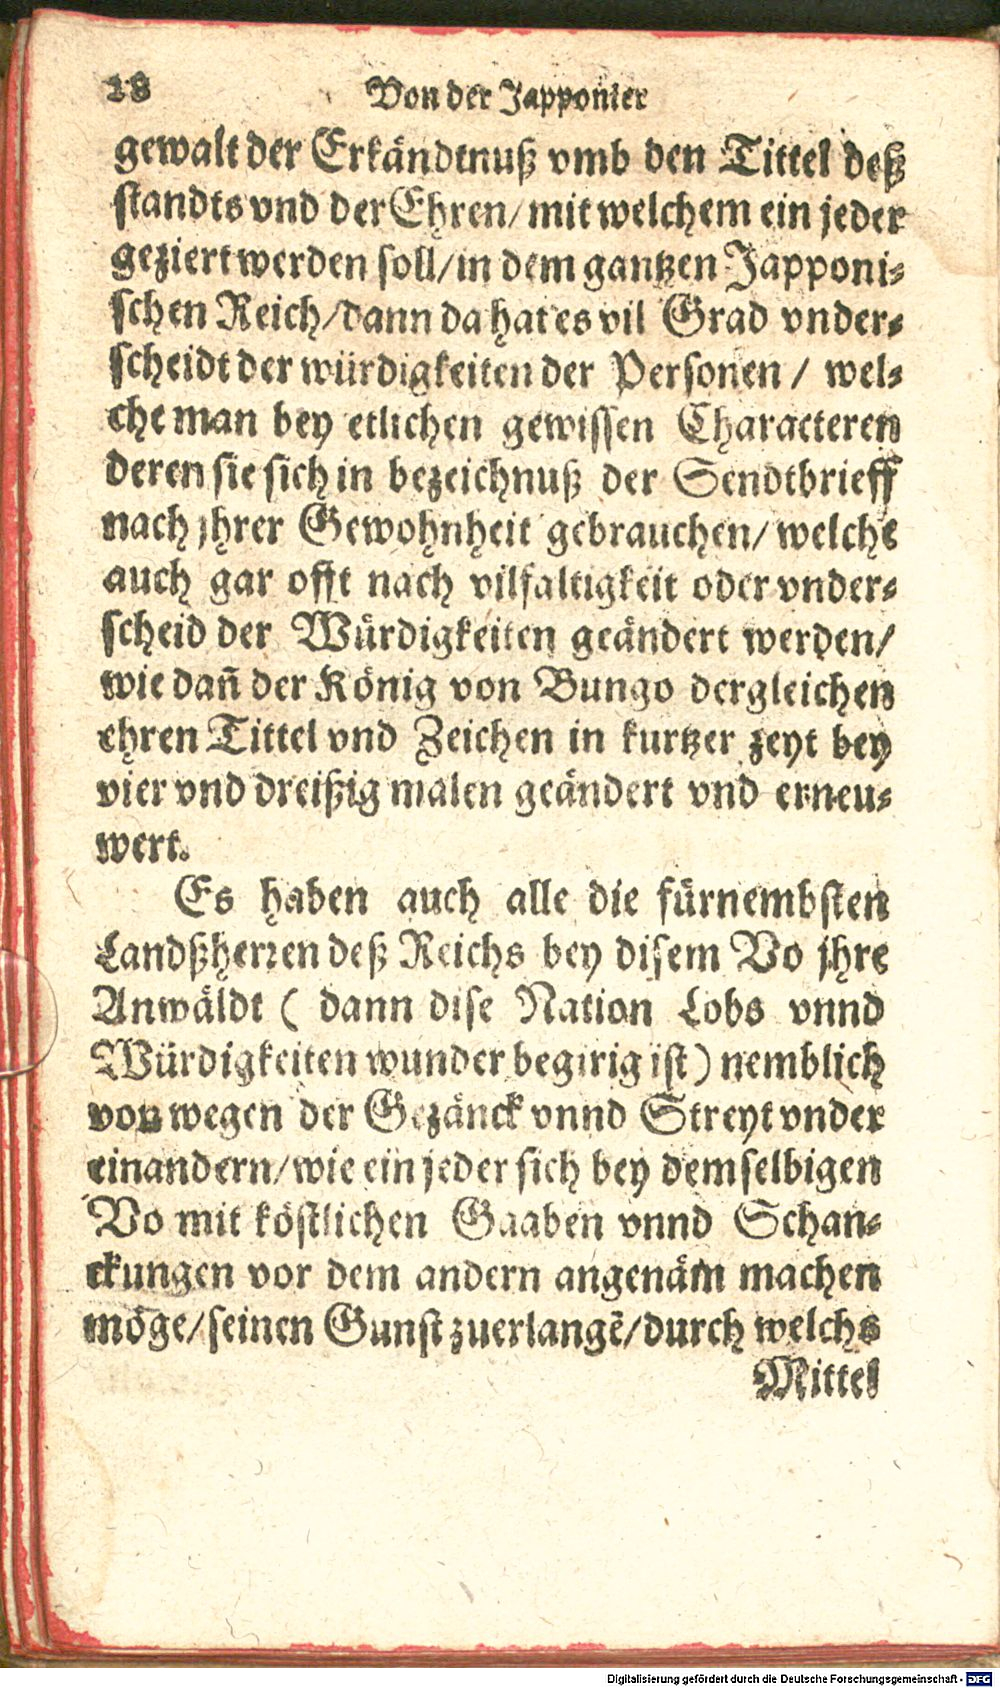 28 Von der Japponier
gewalt der Erkändtnuß vmb den Tittel deß
standts vnd der Ehren/ mit welchem ein jeder
geziert werden soll/ in dem gantzen Japponi-
schen Reich/ dann da hat es vil Grad vnder-
scheidt der würdigkeiten der Personen / wel-
che man bey etlichen gewissen Characteren
deren sie sich in bezeichnuß der Sendtbrieff
nach jhrer Gewohnheit gebrauchen/ welche
auch gar offt nach vilfaltigkeit oder vnder-
scheid der Würdigkeiten geändert werden/
wie dañ der König von Bungo dergleichen
ehren Tittel vnd Zeichen in kurtzer zeyt bey
vier vnd dreißig malen geändert vnd erneu-
wert.
Es haben auch alle die fürnembsten
Landßherren deß Reichs bey disem Vo jhre
Anwäldt ( dann dise Nation Lobs vnnd
Würdigkeiten wunder begirig ist ) nemblich
von wegen der Gezänck vnnd Streyt vnder
einandern/ wie ein jeder sich bey demselbigen
Vo mit köstlichen Gaaben vnnd Schan-
ckungen vor dem andern angenäm machen
möge/ seinen Gunst zuerlangẽ/ durch welchs
Mittel
Digitalisierung gefördert durch die Deutsche Forschungsgemeinschaft - DFG